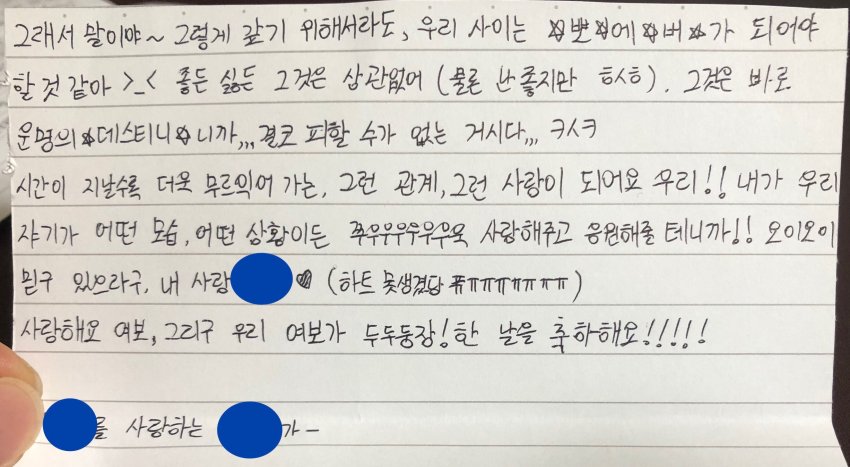 그래서 말이야~ 그렇게 같기 위해서라도, 우리 사이는 ☆뽀☆에☆버☆가 되어야
할 것 같아 >_< 좋든 싫든 그것은 상관없어 (물론 난 좋지만 ㅎㅅㅎ). 그것은 바로
운명의☆데스티니☆니까,,, 결코 피할 수가 없는 거시다,,, ㅋㅅㅋ
시간이 지날수록 더욱 무르익어 가는, 그런 관계, 그런 사랑이 되어요 우리!! 내가 우리
쟈기가 어떤 모습, 어떤 상황이든 쭈우우우우우욱 사랑해주고 응원해줄 테니까!! 오이오이
믿구 있으라구, 내 사랑 ♥ (하트 못생겼당 ㅠㅠㅠㅠㅠㅠㅠ)
사랑해요 여보, 그리구 우리 여보가 두두둥장! 한 날을 축하해요!!!!!
를 사랑하는 가-